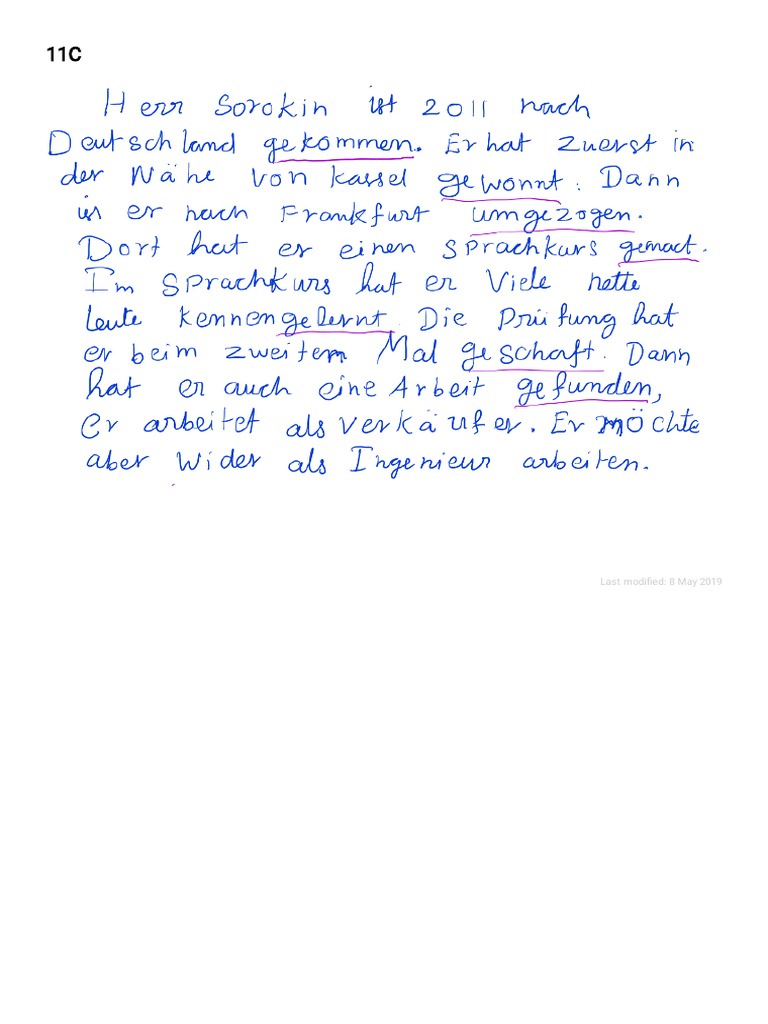 11C
Herr Sorokin ist 2011 nach
Deutschland gekommen. Er hat zuerst in
der Nähe von Kassel gewonnt. Dann
is er nach Frankfurt umgezogen.
Dort hat er einen Sprachkurs gemact.
Im Sprachkurs hat er Viele nette
leute kennengelernt. Die Prüfung hat
er beim zweitem Mal geschaft. Dann
hat er auch eine Arbeit gefunden,
Er arbeitet als Verkäufer. Er möchte
aber wider als Ingenieur arbeiten.
Last modified: 8 May 2019